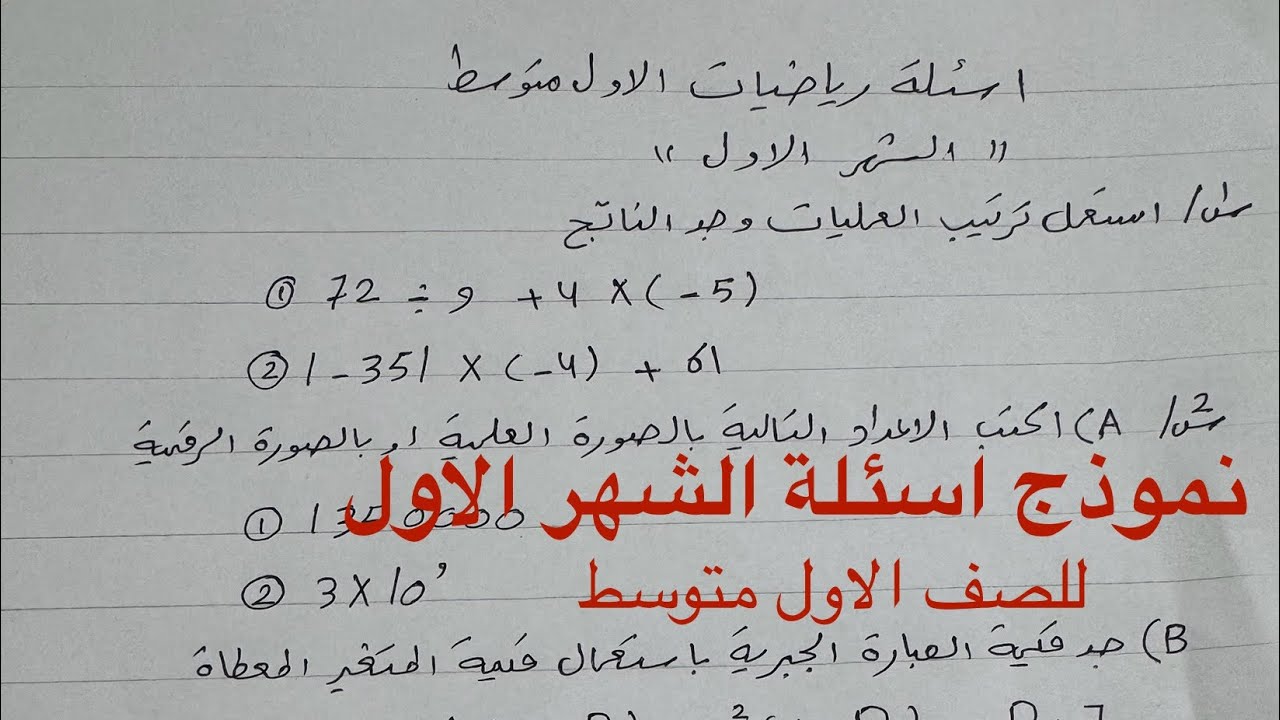 اسئلة رياضيات الاول متوسط
" الشهر الاول "
س1/ استعمل ترتيب العمليات وجد الناتج
① 72 ÷ 9 +4 X (-5)
② |-35| X (-4) + 61
س2/ A) اكتب الاعداد التالية بالصورة العلمية او بالصورة الرقمية
نموذج اسئلة الشهر الاول
①
② 3 X 10
للصف الاول متوسط
B) جد قيمة العبارة الجبرية باستعمال قيمة المتغير المعطاة